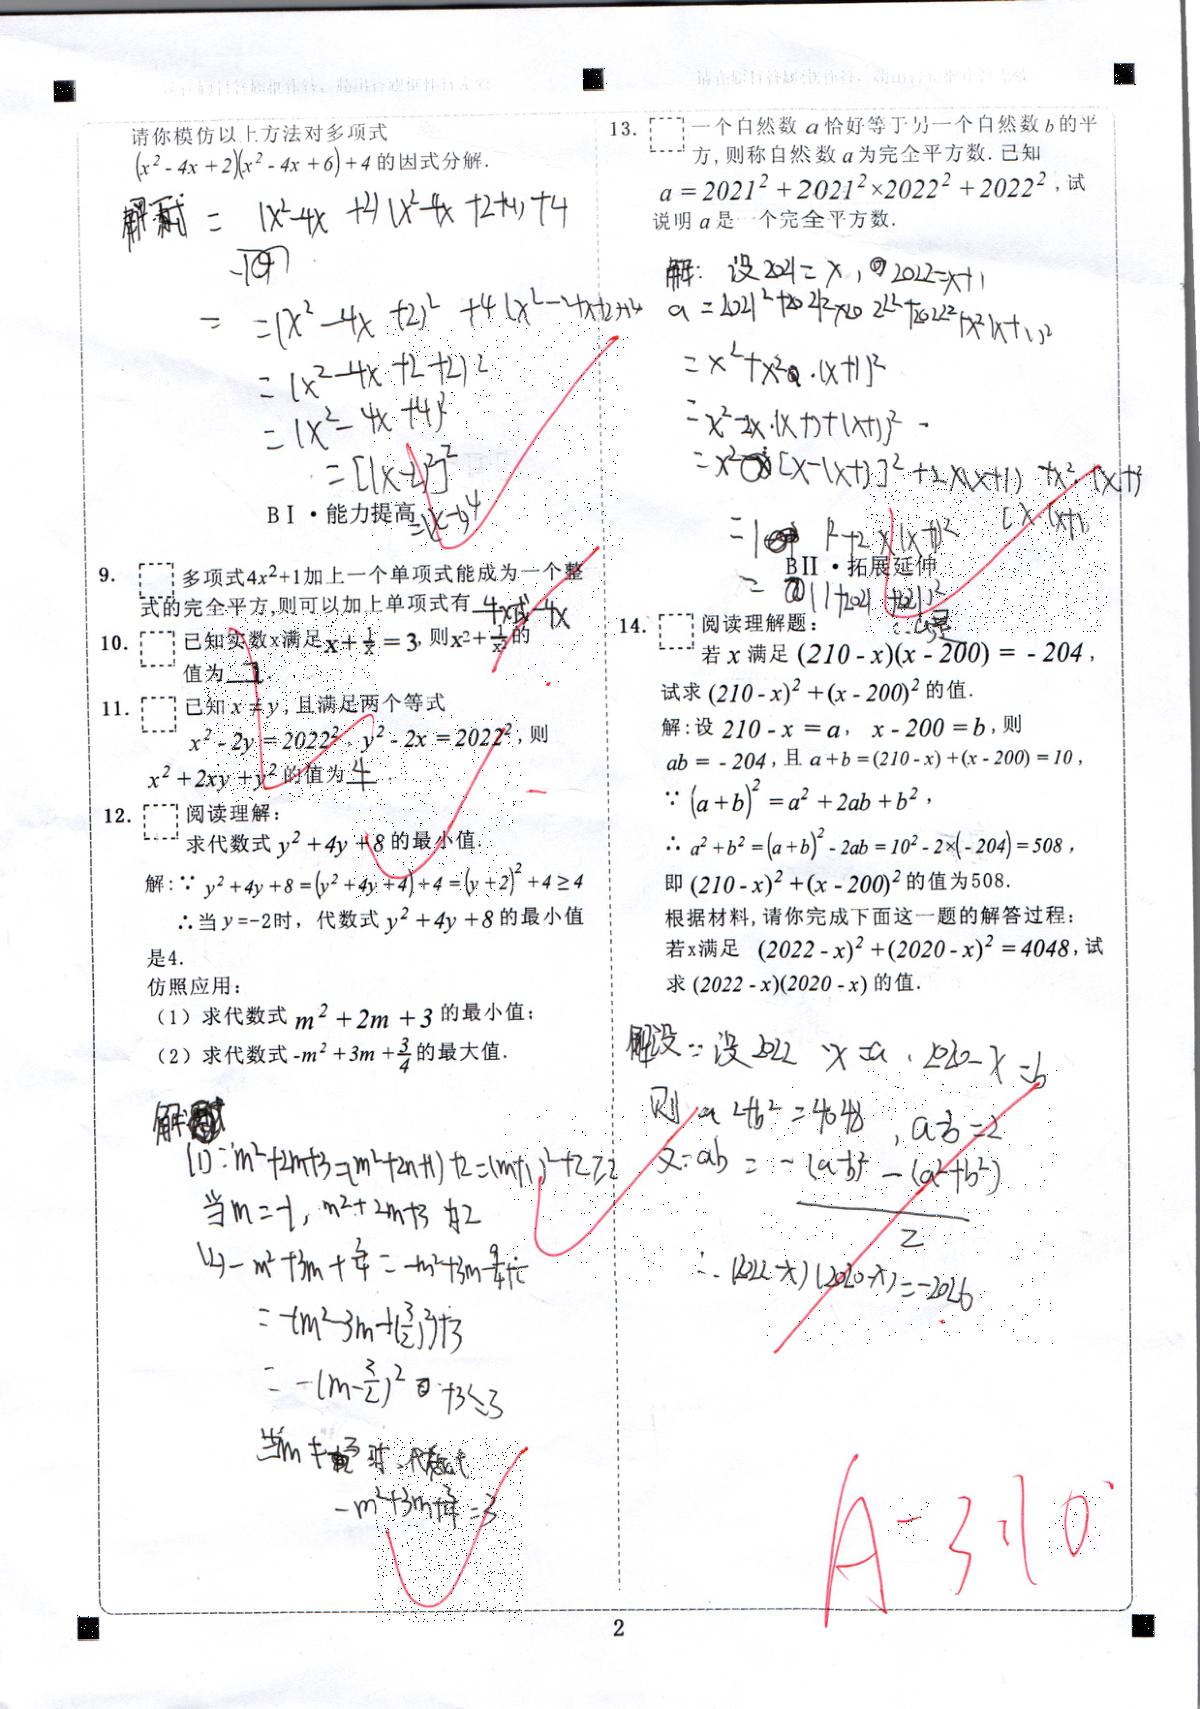 请你模仿以上方法对多项式
(x² - 4x + 2)(x² - 4x + 6) + 4 的因式分解.
= (x²-4x+2)(x²-4x+2+4)+4
= (x²-4x+2)²+4(x²-4x+2)+4
= (x²-4x+2+2)²
= (x²-4x+4)²
= [(x-2)²]²
BⅠ·能力提高
9. 多项式4x²+1加上一个单项式能成为一个整
式的完全平方,则可以加上单项式有 4x或-4x
10. 已知实数x满足x + 1/x = 3, 则x² + 1/x² 的
值为 7 .
11. 已知 x ≠ y, 且满足两个等式
x² - 2y = 2022², y² - 2x = 2022², 则
x² + 2xy + y² 的值为 4
12. 阅读理解:
求代数式 y² + 4y + 8 的最小值.
解:∵ y² + 4y + 8 = (y² + 4y + 4) + 4 = (y + 2)² + 4 ≥ 4
∴当 y=-2时, 代数式 y² + 4y + 8 的最小值
是4.
仿照应用:
(1) 求代数式 m² + 2m + 3 的最小值;
(2) 求代数式 -m² + 3m + 3/4 的最大值.
解
(1)∵m²+2m+3=(m²+2m+1)+2=(m+1)²+2≥2
当m=-1, m²+2m+3为2
(2)-m²+3m+3/4=-m²+3m-9/4+
=-(m²-3m+(3/2)²)+3
=-(m-3/2)²+3≤3
当m= 时,代数式
-m²+3m+3/4=3
13. 一个自然数 a 恰好等于另一个自然数 b 的平
方, 则称自然数 a 为完全平方数. 已知
a = 2021² + 2021² × 2022² + 2022², 试
说明 a 是一个完全平方数.
解: 设2021=x, 2022=x+1
a=2021²+2021²×2022²+2022²
=x²+x²·(x+1)²
=x²-2x·(x+1)+(x+1)²
= [x-(x+1)]²+2x(x+1)+x²·(x+1)²
BⅡ·拓展延伸
14. 阅读理解题:
若 x 满足 (210 - x)(x - 200) = - 204,
试求 (210 - x)² + (x - 200)² 的值.
解:设 210 - x = a, x - 200 = b, 则
ab = - 204, 且 a + b = (210 - x) + (x - 200) = 10,
∵ (a + b)² = a² + 2ab + b²,
∴ a² + b² = (a + b)² - 2ab = 10² - 2×(- 204) = 508,
即 (210 - x)² + (x - 200)² 的值为508.
根据材料, 请你完成下面这一题的解答过程:
若x满足 (2022 - x)² + (2020 - x)² = 4048, 试
求 (2022 - x)(2020 - x) 的值.
解设: 设2022-x=a, 2020-x=b
则a²+b²=4048, a-b=2
ab=-(a-b)²-(a²+b²)
2
∴(2022-x)(2020-x)=-2026
A-
2